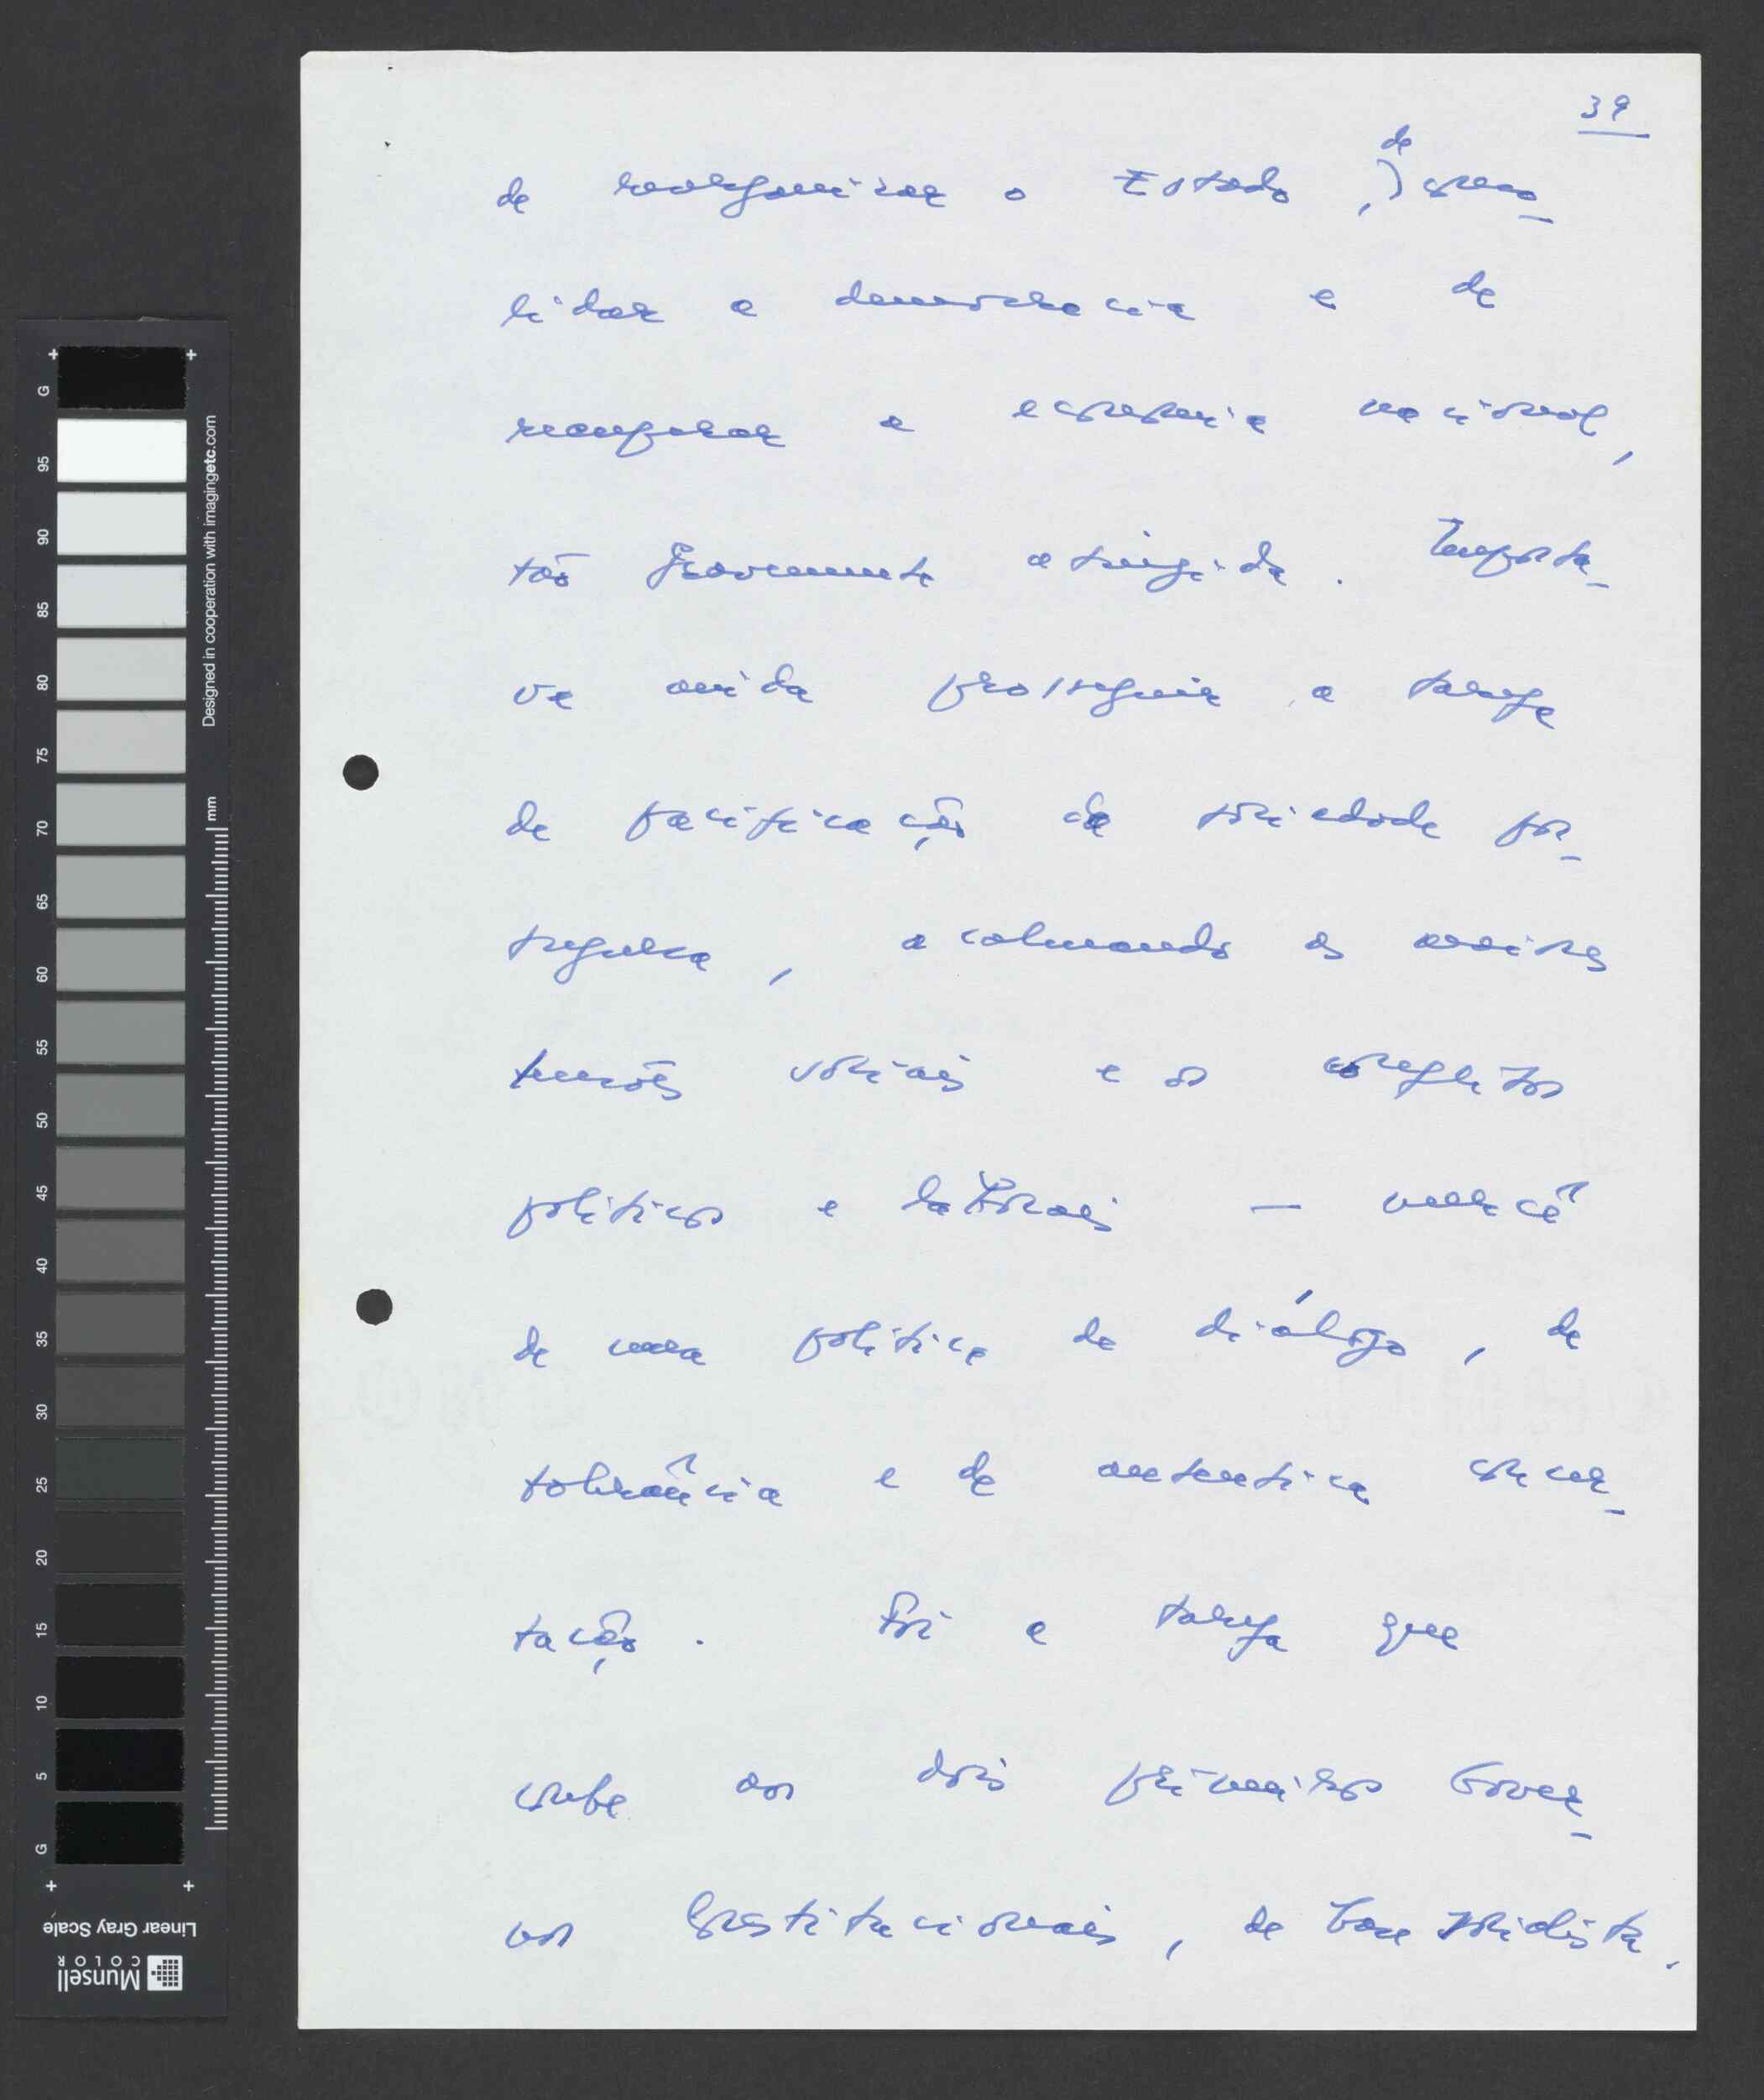 39
de reorganizar o Estado, de conso-
lidar a democracia e de
recuperar a economia nacional,
tão gravemente atingida. Importa-
va ainda prosseguir a tarefa
de pacificação da sociedade por-
tuguesa, acalmando as maiores
tensões sociais e os conflitos
políticos e laborais — mercê
de uma política de diálogo, de
tolerância e de autentica concer-
tação. Foi a tarefa que
coube aos dois primeiros Gover-
nos Constitucionais, de base socialista.
G
95
90
85
80
75
70
65
60
55
50
45
40
35
30
25
20
15
10
5
G
Designed in cooperation with imagingetc.com
mm
Linear Gray Scale
Munsell
COLOR